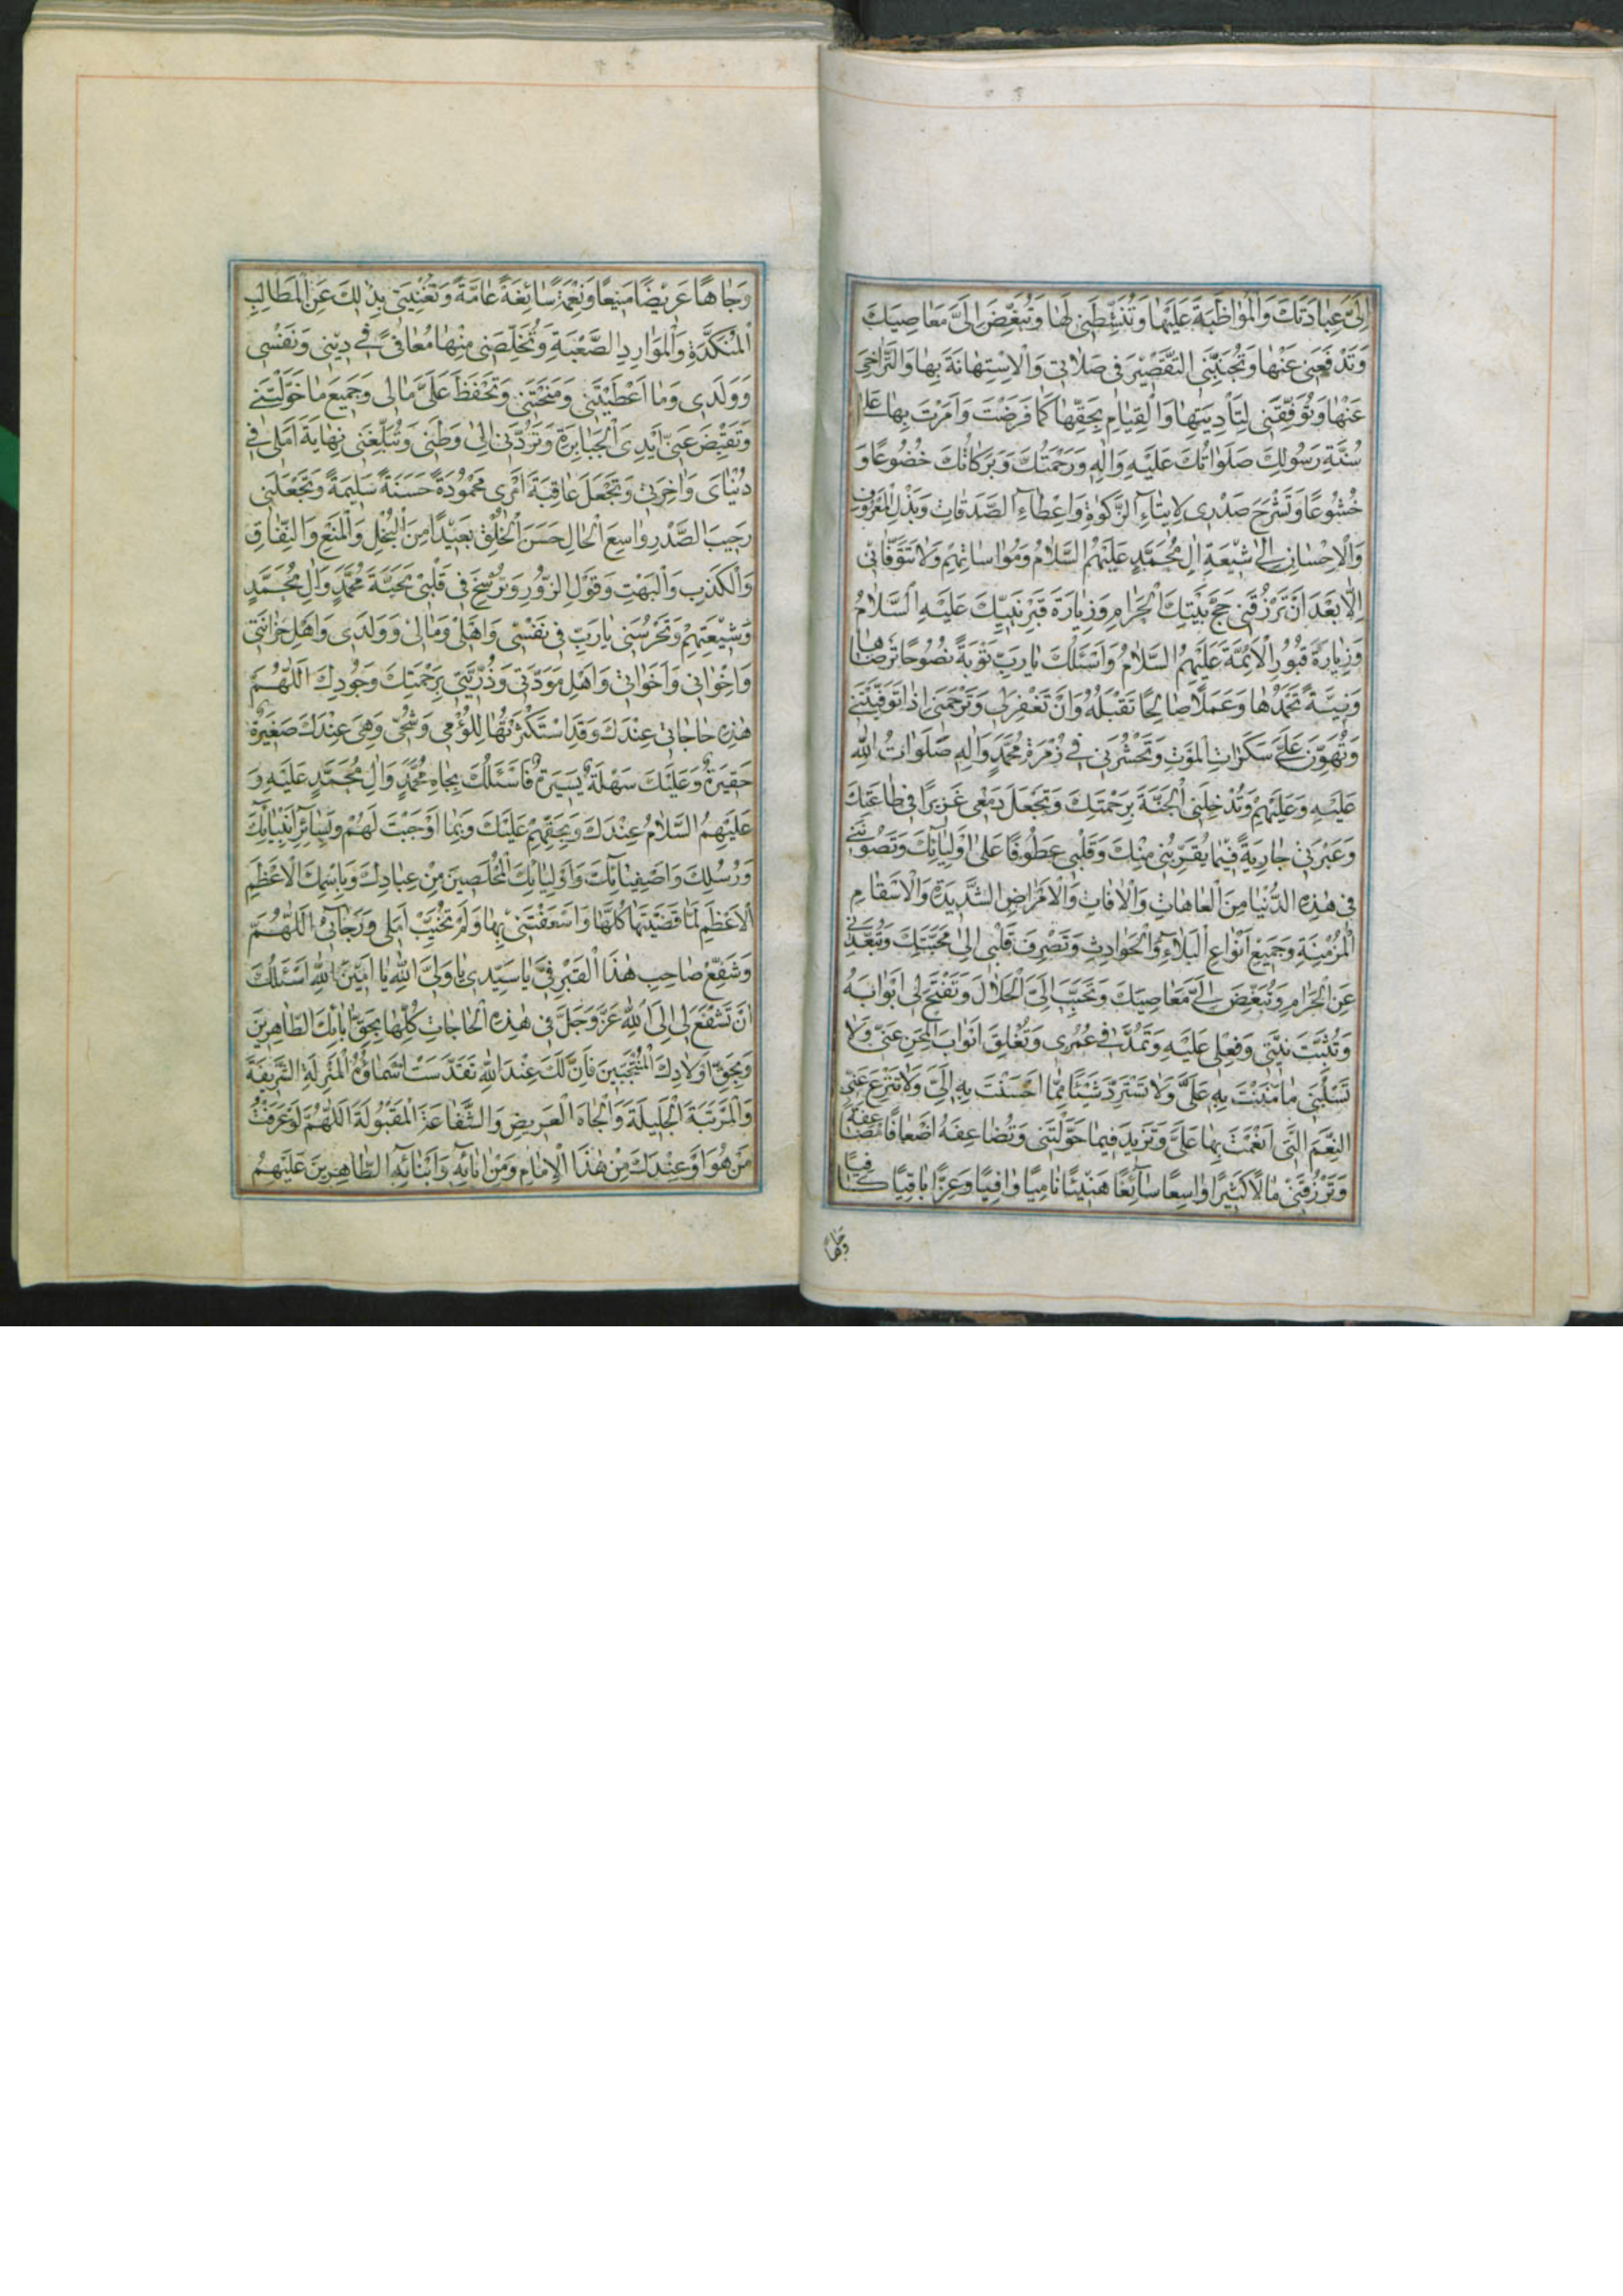 اِلَیَّ عِبَادَتَكَ وَالْمُوَاظَبَةَ عَلَيْهَا وَتُنَشِّطَنِي لَهَا وَتُبَغِّضَ اِلَیَّ مَعَاصِيَكَ
وَتَدْفَعَنِي عَنْهَا وَتُجَنِّبَنِي التَّقْصِيرَ فِي صَلَاتِي وَالْاِسْتِهَانَةَ بِهَا وَالتَّرَاخِيَ
عَنْهَا وَتُوَفِّقَنِي لِتَأْدِيَتِهَا وَالْقِيَامِ بِحَقِّهَا كَمَا فَرَضْتَ وَاَمَرْتَ بِهَا عَلَى
سُنَّةِ رَسُولِكَ صَلَوَاتُكَ عَلَيْهِ وَاٰلِهِ وَرَحْمَتُكَ وَبَرَكَاتُكَ خُضُوعًا وَ
خُشُوعًا وَتَشْرَحَ صَدْرِي لِاِيتَاءِ الزَّكٰوةِ وَاِعْطَاءِ الصَّدَقَاتِ وَبَذْلِ الْمَعْرُوفِ
وَالْاِحْسَانِ اِلٰى شِيعَةِ اٰلِ مُحَمَّدٍ عَلَيْهِمُ السَّلَامُ وَمُوَاسَاتِهِمْ وَلَا تَتَوَفَّانِي
اِلَّا بَعْدَ اَنْ تَرْزُقَنِي حَجَّ بَيْتِكَ الْحَرَامِ وَزِيَارَةَ قَبْرِ نَبِيِّكَ عَلَيْهِ السَّلَامُ
وَزِيَارَةَ قُبُورِ الْاَئِمَّةِ عَلَيْهِمُ السَّلَامُ وَاَسْئَلُكَ يَا رَبِّ تَوْبَةً نَصُوحًا تَرْضَاهَا
وَنِيَّةً تَحْمَدُهَا وَعَمَلًا صَالِحًا تَقْبَلُهُ وَاَنْ تَغْفِرَ لِي وَتَرْحَمَنِي اِذَا تَوَفَّيْتَنِي
وَتُهَوِّنَ عَلَیَّ سَكَرَاتِ الْمَوْتِ وَتَحْشُرَنِي فِي زُمْرَةِ مُحَمَّدٍ وَاٰلِهِ صَلَوَاتُ اللّٰهِ
عَلَيْهِ وَعَلَيْهِمْ وَتُدْخِلَنِي الْجَنَّةَ بِرَحْمَتِكَ وَتَجْعَلَ دَمْعِي غَزِيرًا فِي طَاعَتِكَ
وَعَبْرَتِي جَارِيَةً فِيمَا يُقَرِّبُنِي مِنْكَ وَقَلْبِي عَطُوفًا عَلٰى اَوْلِيَائِكَ وَتَصُونَنِي
فِي هٰذِهِ الدُّنْيَا مِنَ الْعَاهَاتِ وَالْاٰفَاتِ وَالْاَمْرَاضِ الشَّدِيدَةِ وَالْاَسْقَامِ
الْمُزْمِنَةِ وَجَمِيعِ اَنْوَاعِ الْبَلَاءِ وَالْحَوَادِثِ وَتَصْرِفَ قَلْبِي اِلٰى مَحَبَّتِكَ وَتُبَعِّدَنِي
عَنِ الْحَرَامِ وَتُبَغِّضَ اِلَیَّ مَعَاصِيَكَ وَتُحَبِّبَ اِلَیَّ الْحَلَالَ وَتَفْتَحَ لِي اَبْوَابَهُ
وَتُثَبِّتَ نِيَّتِي وَفِعْلِي عَلَيْهِ وَتَمُدَّ فِي عُمْرِي وَتُغْلِقَ اَبْوَابَ الْمِحَنِ عَنِّي وَلَا
تَسْلُبَنِي مَا مَنَنْتَ بِهِ عَلَیَّ وَلَا تَسْتَرِدَّ شَيْئًا مِمَّا اَحْسَنْتَ بِهِ اِلَیَّ وَلَا تَنْزِعَ عَنِّي
النِّعَمَ الَّتِي اَنْعَمْتَ بِهَا عَلَیَّ وَتَزِيدَ فِيمَا خَوَّلْتَنِي وَتُضَاعِفَهُ اَضْعَافًا مُضَاعَفَةً
وَتَرْزُقَنِي مَالًا كَثِيرًا وَاسِعًا سَائِغًا هَنِيئًا نَامِيًا وَافِيًا وَعِزًّا بَاقِيًا كَافِيًا
وَجَاهًا
وَجَاهًا عَرِيضًا مَنِيعًا وَنِعْمَةً سَابِغَةً عَامَّةً وَتُغْنِيَنِي بِذٰلِكَ عَنِ الْمَطَالِبِ
الْمُنَكَّدَةِ وَالْمَوَارِدِ الصَّعْبَةِ وَتُخَلِّصَنِي مِنْهَا مُعَافًى فِي دِينِي وَنَفْسِي
وَوَلَدِي وَمَا اَعْطَيْتَنِي وَمَنَحْتَنِي وَتَحْفَظَ عَلَیَّ مَالِي وَجَمِيعَ مَا خَوَّلْتَنِي
وَتَقْبِضَ عَنِّي اَيْدِيَ الْجَبَابِرَةِ وَتَرُدَّنِي اِلٰى وَطَنِي وَتُبَلِّغَنِي نِهَايَةَ اَمَلِي فِي
دُنْيَايَ وَاٰخِرَتِي وَتَجْعَلَ عَاقِبَةَ اَمْرِي مَحْمُودَةً حَسَنَةً سَلِيمَةً وَتَجْعَلَنِي
رَحِيبَ الصَّدْرِ وَاسِعَ الْحَالِ حَسَنَ الْخُلْقِ بَعِيدًا مِنَ الْبُخْلِ وَالْمَنْعِ وَالنِّفَاقِ
وَالْكَذِبِ وَالْبَهْتِ وَقَوْلِ الزُّورِ وَتُرْسِخَ فِي قَلْبِي مَحَبَّةَ مُحَمَّدٍ وَاٰلِ مُحَمَّدٍ
وَشِيعَتِهِمْ وَتَحْرُسَنِي يَا رَبِّ فِي نَفْسِي وَاَهْلِي وَمَالِي وَوَلَدِي وَاَهْلِ حُزَانَتِي
وَاِخْوَانِي وَاَخَوَاتِي وَاَهْلِ مَوَدَّتِي وَذُرِّيَّتِي بِرَحْمَتِكَ وَجُودِكَ اَللّٰهُمَّ
هٰذِهِ حَاجَاتِي عِنْدَكَ وَقَدِ اسْتَكْثَرْتُهَا لِلُؤْمِي وَشُحِّي وَهِيَ عِنْدَكَ صَغِيرَةٌ
حَقِيرَةٌ وَعَلَيْكَ سَهْلَةٌ يَسِيرَةٌ فَاَسْئَلُكَ بِجَاهِ مُحَمَّدٍ وَاٰلِ مُحَمَّدٍ عَلَيْهِ وَ
عَلَيْهِمُ السَّلَامُ عِنْدَكَ وَبِحَقِّهِمْ عَلَيْكَ وَبِمَا اَوْجَبْتَ لَهُمْ وَبِسَائِرِ اَنْبِيَائِكَ
وَرُسُلِكَ وَاَصْفِيَائِكَ وَاَوْلِيَائِكَ الْمُخْلَصِينَ مِنْ عِبَادِكَ وَبِاسْمِكَ الْاَعْظَمِ
الْاَعْظَمِ لَمَّا قَضَيْتَهَا كُلَّهَا وَاَسْعَفْتَنِي بِهَا وَلَمْ تُخَيِّبْ اَمَلِي وَرَجَائِي اَللّٰهُمَّ
وَشَفِّعْ صَاحِبَ هٰذَا الْقَبْرِ فِیَّ يَا سَيِّدِي يَا وَلِیَّ اللّٰهِ يَا اَمِينَ اللّٰهِ اَسْئَلُكَ
اَنْ تَشْفَعَ لِي اِلَى اللّٰهِ عَزَّ وَجَلَّ فِي هٰذِهِ الْحَاجَاتِ كُلِّهَا بِحَقِّ اٰبَائِكَ الطَّاهِرِينَ
وَبِحَقِّ اَوْلَادِكَ الْمُنْتَجَبِينَ فَاِنَّ لَكَ عِنْدَ اللّٰهِ تَقَدَّسَتْ اَسْمَاؤُهُ الْمَنْزِلَةَ الشَّرِيفَةَ
وَالْمَرْتَبَةَ الْجَلِيلَةَ وَالْجَاهَ الْعَرِيضَ وَالشَّفَاعَةَ الْمَقْبُولَةَ اَللّٰهُمَّ لَوْ عَرَفْتُ
مَنْ هُوَ اَوْ عِنْدَكَ مِنْ هٰذَا الْاِمَامِ وَمِنْ اٰبَائِهِ وَاَبْنَائِهِ الطَّاهِرِينَ عَلَيْهِمُ